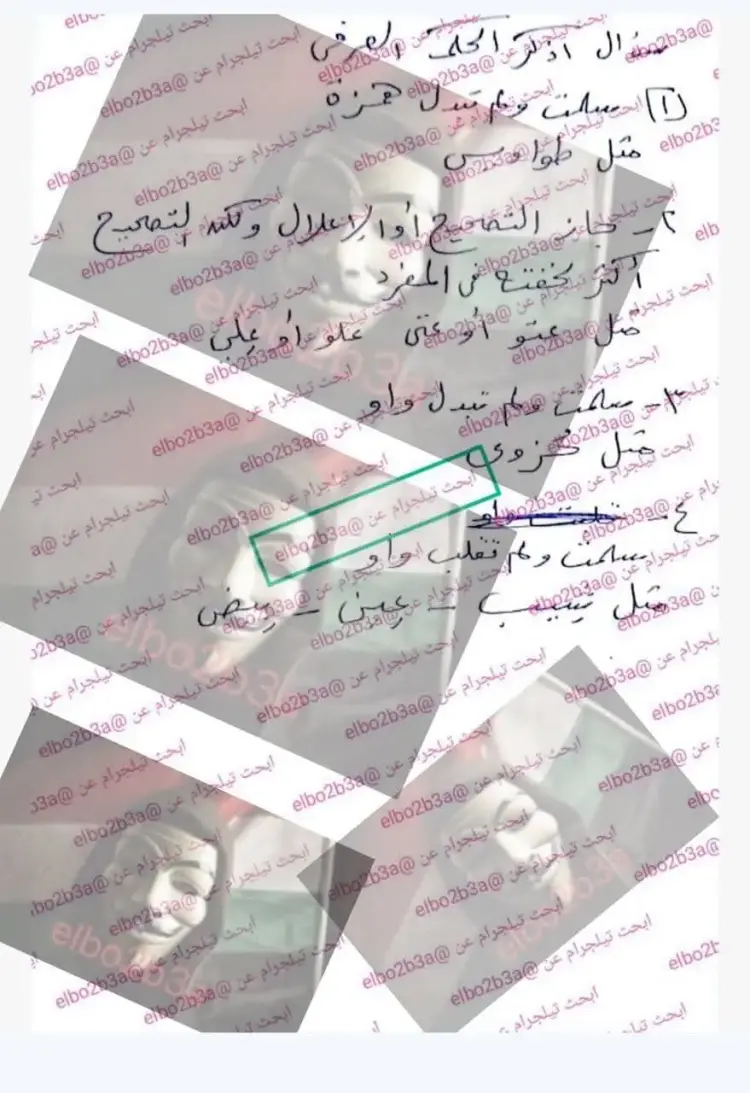 سؤال اذكر الحكم الصرفى
(١) سلمت ولم تبدل همزة
مثل طواويس
٢- جاز التصحيح أو الإعلال ولكن التصحيح
أكثر لخفته فى المفرد
مثل عتو أو عتى علو أو على
٣- سلمت ولم تبدل واو
مثل خزوى
٤-
سلمت ولم تقلب واو
مثل - عين - بيض
ابحث تيلجرام عن @elbo2b3a
elbo2b3a